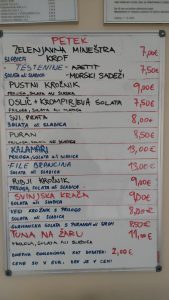 PETEK
ZELENJAVNA MINEŠTRA 7,00€
SLADICA KROF
TESTENINE - APETIT 7,50€
SOLATA ali SLADICA - MORSKI SADEŽI
PUSTNI KROŽNIK 9,00€
PRILOGA, SOLATA ali SLADICA
OSLIČ + KROMPIRJEVA SOLATA 7,50€
PRILOGA, SOLATA ali SLADICA
SVI. 8,00€
SOLATA ali SLADICA
PURAN 8,50€
PRILOGA, SOLATA ali SLADICA
KALAMARI 13,00€
PRILOGA, SOLATA ali SLADICA
FILE BRANCINA 13,00€
PRILOGA SOLATA ali SLADICA
RIBJI KROŽNIK 9,00€
PRILOGA, SOLATA ali SLADICA
SVINJSKA KRAČA 9,00€
PRILOGA, SOLATA ali SLADICA
VEGI KROŽNIK S PRILOGO
SOLATA ali SLADICA
SOLATA S PURANOM ali 8,50€
TUNA NA ŽARU 11,00€
PRILOGA, SOLATA ALI SLADICA
KOT DODATEK: 2,00€
CENE SO V €. DDV JE V CENI